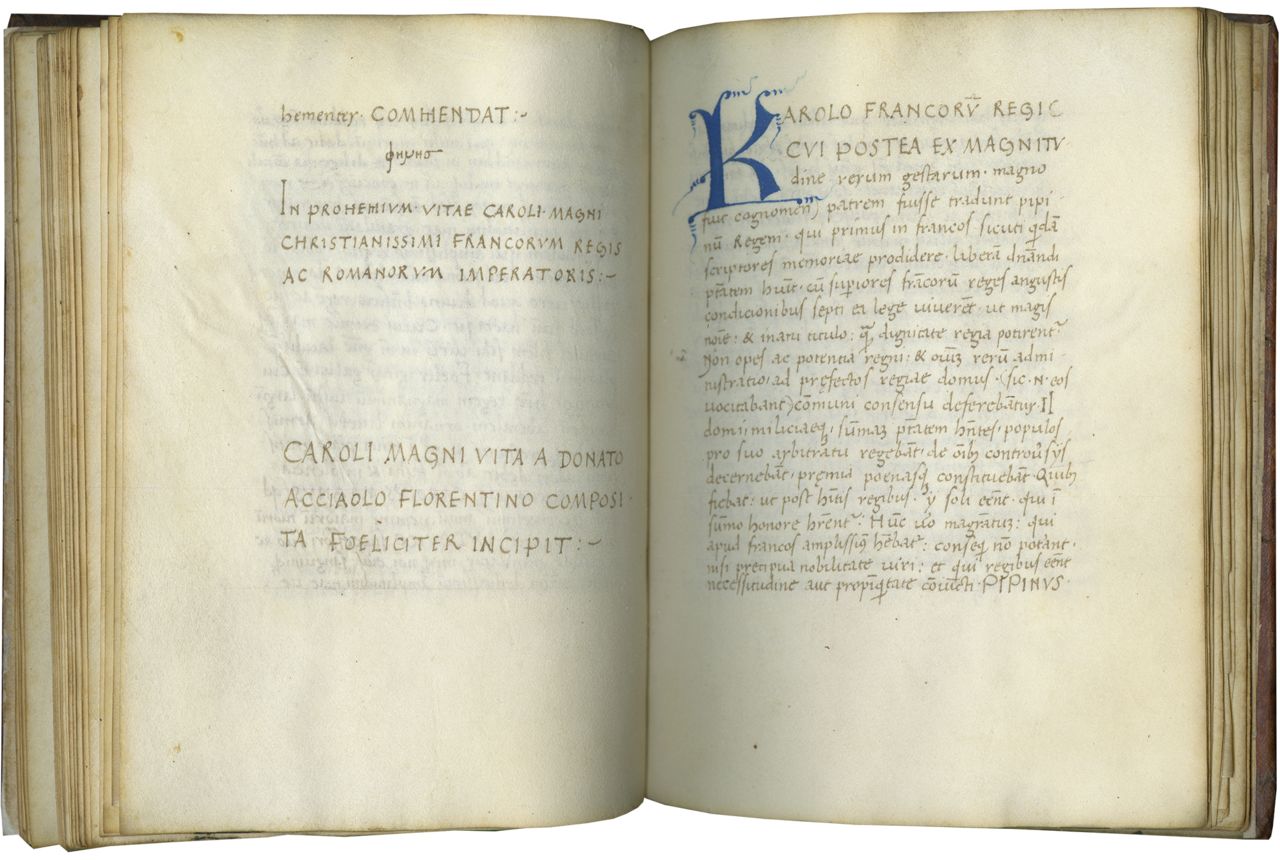 hementer. COMMENDAT :~
IN PROHEMIVM VITAE CAROLI MAGNI
CHRISTIANISSIMI FRANCORVM REGIS
AC ROMANORVM IMPERATORIS :~
CAROLI MAGNI VITA A DONATO
ACCIAOLO FLORENTINO COMPOSI
TA FOELICITER INCIPIT :~
KAROLO FRANCORV̄ REGI C
CVI POSTEA EX MAGNITV
dine rerum gestarum. magno
fuit cognomen) patrem fuisse tradunt pipi
nū Regem. qui primus in francos sicuti q̄dā
scriptores memoriae prodidere. liberā dn̄andi
ptātem hūit. cū supiores frācorū reges angustis
condicionibus septi ea lege viverēt. ut magis
noīe: & inani titulo: q̄ dignitate regia potirent᷑
Non opes ac potentia regni: & oīuꝫ rerū admi
nistratio. ad pręfectos regiae domus. (sic. n. eos
vocitabant) cōmuni consensu deferebātur. Il
domi militiaeq; sūmaꝫ ptātem hn̄tes. populos
pro suo arbitratu regebāt. de oībꝫ controv̄sijs
decernebāt. pręmia poenasq; constituebāt. Quibꝫ
fiebat: ut post hītis regibus. ij soli eēnt. qui ī
sūmo honore hr̄ent᷑. Hūc v̊o magr̄atuꝫ: qui
apud francos amplissiꝰ hēbat᷑: conseq̄ nō poterāt.
nisi precipua nobilitate viri: et qui regibus eēnt
necessitudine aut propīq̄tate cōiūcti. PIPINVS.